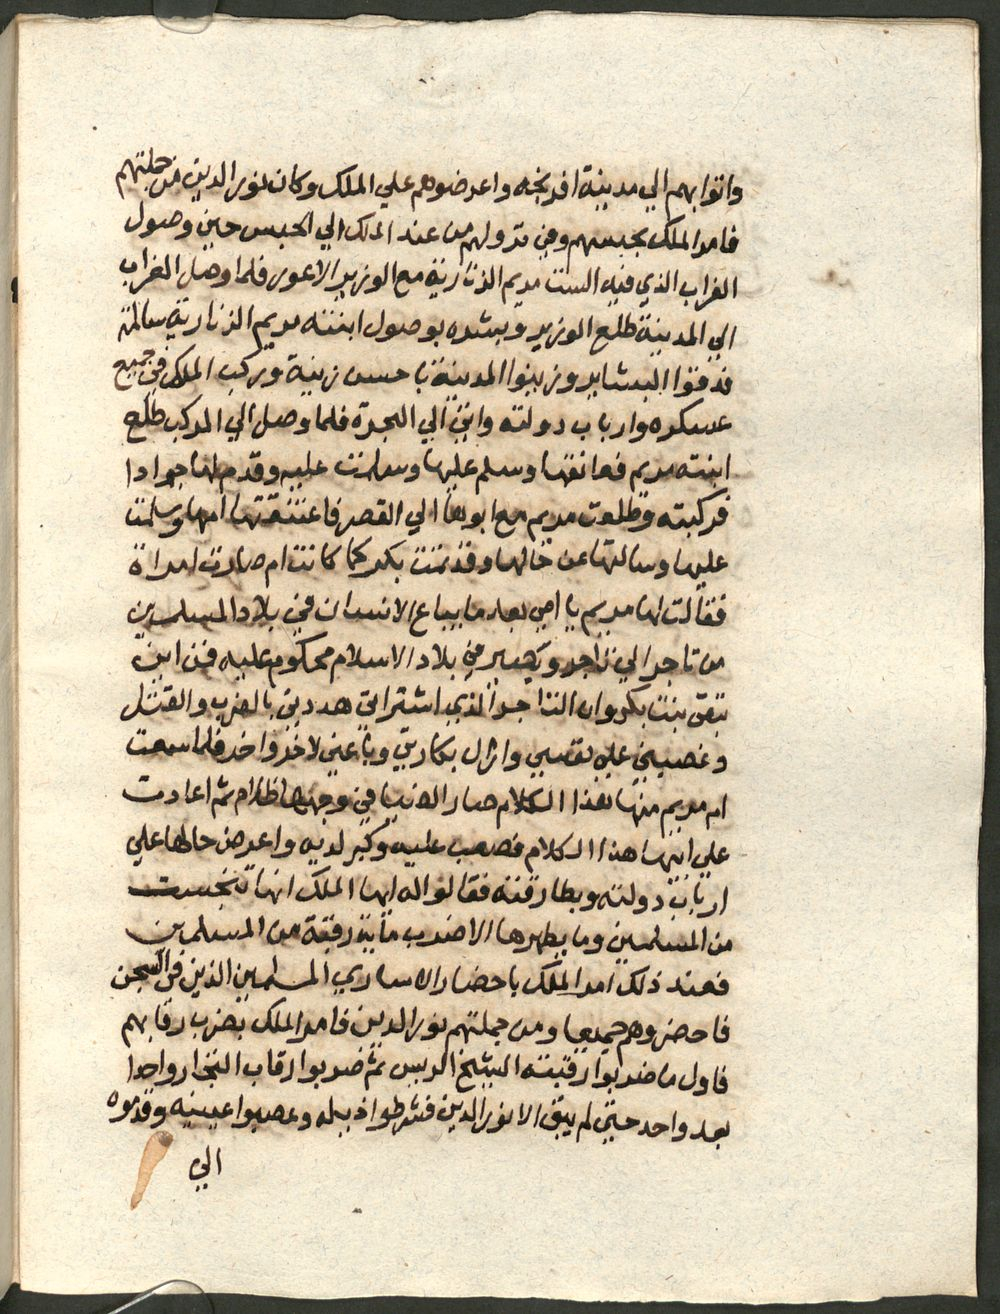 واتوا بهم الي مدينة افرنجه واعرضوهم علي الملك وكان نور الدين من جملتهم
فامر الملك بحبسهم وفي نزولهم من عند الملك الي الحبس حين وصول
الغراب الذي فيه الست مريم الزنارية مع الوزير الاعور فلما وصل الغراب
الي المدينة طلع الوزير وبشره بوصول ابنته مريم الزنارية سالمة
فدقوا البشاير وزينوا المدينة باحسن زينة وركب الملك في جميع
عسكره وارباب دولته واتي الي البحرة فلما وصل الي المركب طلع
ابنته مريم فعانقها وسلم عليها وسلمت عليه وقدم لها جوادا
فركبته وطلعت مريم مع ابوها الي القصر فاعتنقتها امها وسلمت
عليها وسالتها عن حالها وقد بكر كما كانت ام صارت امراة
فقالت لها مريم يا امي بعد ما يباع الانسان في بلاد المسلمين
من تاجر الي تاجر ويصير في بلاد الاسلام محكوم عليه فمن اين
تبقي بنت بكر وان التاجر الذي اشتراني هددني بالضرب والقتل
وغصبني علي نفسي وازال بكارتي وباعني لاخر واخر فلما سمعت
ام مريم منها هذا الكلام صار الضيا في وجهها ظلام ثم اعادت
علي ابيها هذا الكلام فصعب عليه وكبر لديه واعرض حالها علي
ارباب دولته وبطارقته فقالوا له ايها الملك انها تنجست
من المسلمين وما يطهرها الا ضرب ماية رقبة من المسلمين
فعند ذلك امر الملك باحضار الاساري المسلمين الذين في السجن
فاحضروهم جميعا ومن جملتهم نور الدين فامر الملك بضرب رقابهم
فاول ما ضربوا رقبته الشيخ الريس ثم ضربوا رقاب التجار واحدا
بعد واحد حتي لم يبق الا نور الدين فشرطوا ذيله وعصبوا عينيه وقدموه
الي